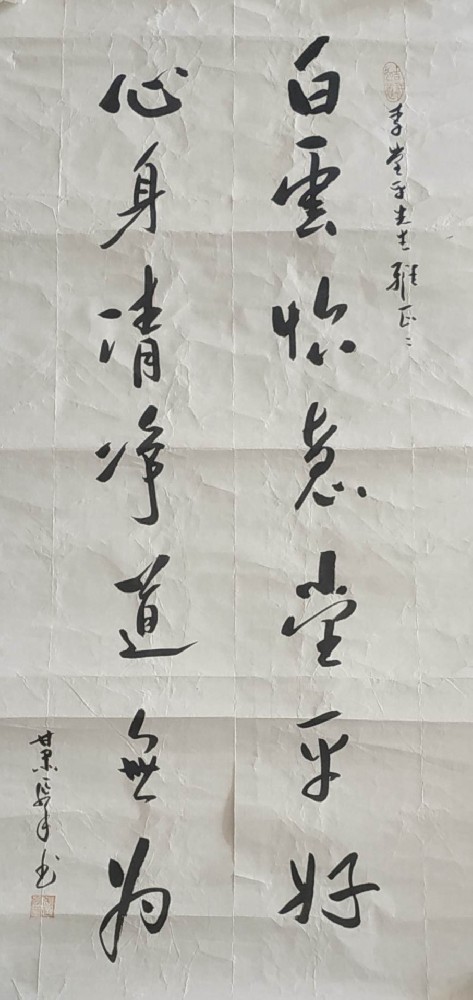 李堂平先生雅正
白雲怡意堂平好
心身清净道無为
书